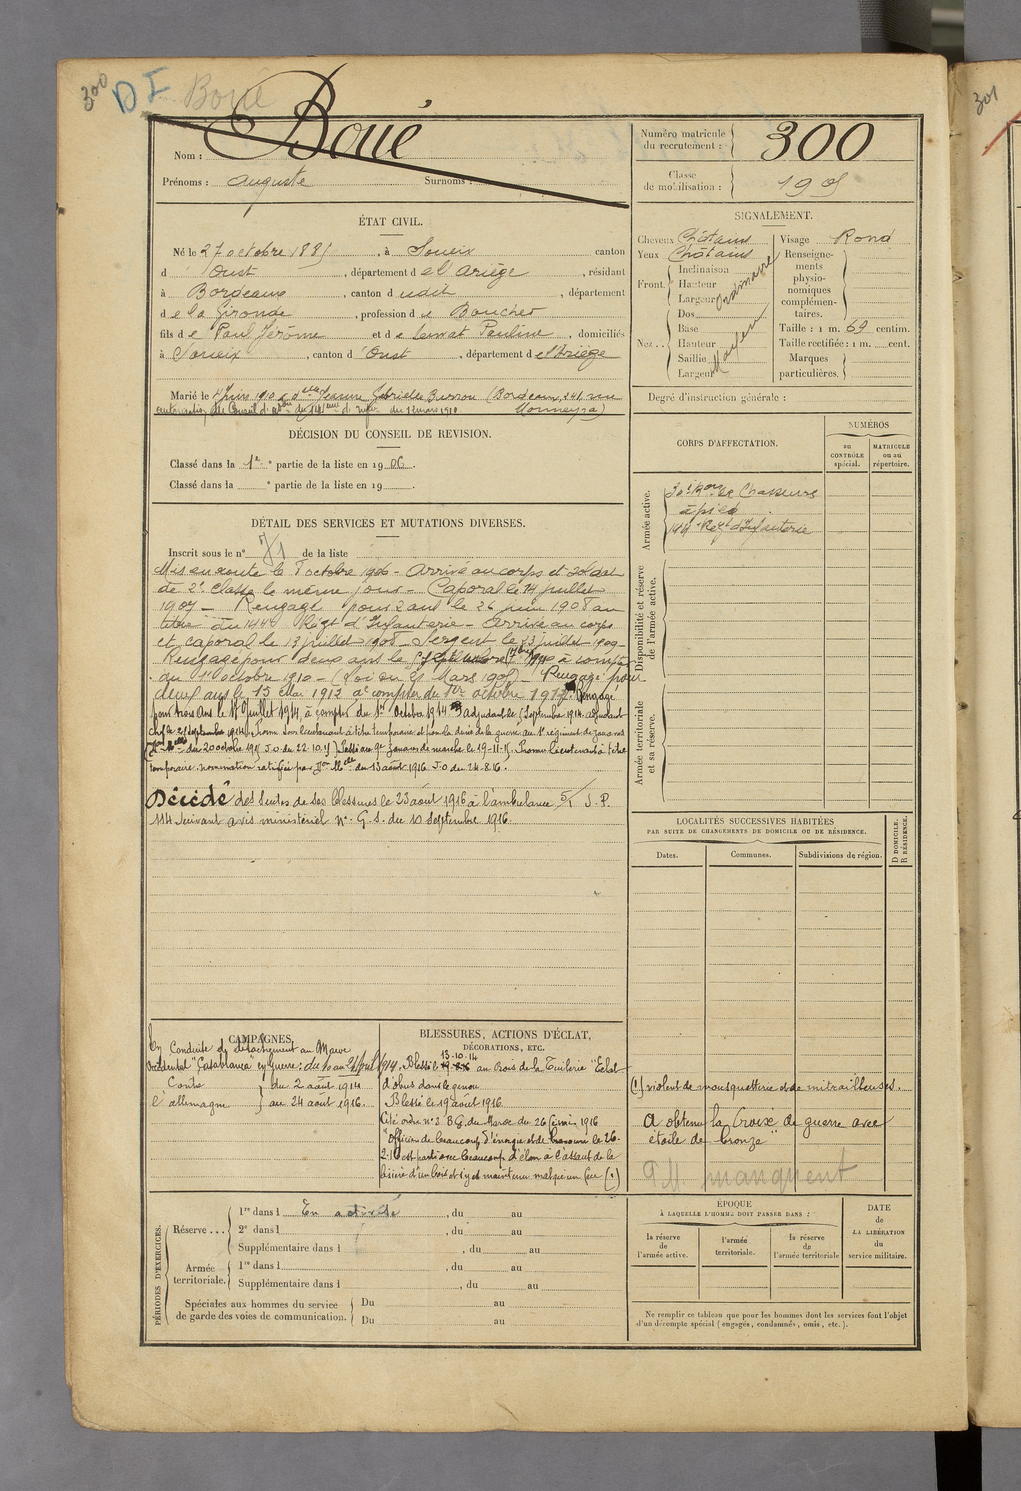 300
D I
Boué
Nom : Boué
Prénoms : Auguste Surnoms :
Numéro matricule du recrutement : 300
Classe de mobilisation : 1905
ÉTAT CIVIL.
Né le 27 octobre 1885, à Soueix canton
d'Oust, département de l'Ariège, résidant
à Bordeaux, canton dudit, département
de la Gironde, profession de Boucher
fils de Paul Jérôme et de Pauline, domiciliés
à Soueix, canton d'Oust, département de l'Ariège
Marié le 4 Juin 1910 à dlle Jeanne Gabrielle (Bordeaux, 241 rue
autorisation du Conseil d'adon du 144eme d'Infie du 1er mars 1910 Mouneyra)
SIGNALEMENT.
Cheveux Châtains
Yeux Châtains
Front. Inclinaison
Hauteur
Largeur Ordinaire
Nez.. Dos
Base
Hauteur Moyen
Saillie
Largeur
Visage Rond
Renseignements physionomiques complémentaires.
Taille : 1 m. 69 centim.
Taille rectifiée : 1 m. cent.
Marques particulières.
Degré d'instruction générale :
DÉCISION DU CONSEIL DE REVISION.
Classé dans la 1re partie de la liste en 1906.
Classé dans la e partie de la liste en 19 .
CORPS D'AFFECTATION.
NUMÉROS
au CONTRÔLE spécial.
MATRICULE ou au répertoire.
Armée active.
30e Bon de Chasseurs
à pied
144e Regt d'Infanterie
Disponibilité et réserve de l'armée active.
Armée territoriale et sa réserve.
DÉTAIL DES SERVICES ET MUTATIONS DIVERSES.
Inscrit sous le n° 71 de la liste
Mis en route le 8 octobre 1906 - Arrivé au corps et soldat
de 2e classe le même jour - Caporal le 14 juillet
1907 - Rengagé pour 2 ans le 26 juin 1908 au
titre du 144e Régt d'Infanterie - Arrivé au corps
et caporal le 13 juillet 1908 - Sergent le 13 juillet 1909 -
Rengagé pour deux ans le 1910 à compter
du 1er octobre 1910 - (Loi du 21 Mars 1905) - Rengagé pour
deux ans le 15 Mai 1912 à compter du 1er octobre 1912. Rengagé
pour trois ans le 15 Juillet 1914, à compter du 1er Octobre 1914. adjudant le 5 Septembre 1914. adjudant
chef le 21 septembre 1914. Promu sous lieutenant à titre temporaire et pour la durée de la guerre au 1er régiment de zouaves
du 20 octobre 1915 J.O du 22.10.15) Passé au 9e zouaves de marche le 19-11-15. Promu lieutenant à titre
temporaire. nomination ratifiée par Don Mlle du 13 août 1916 J.O du 24-8-16.
Décédé des suites de ses blessures le 23 août 1916 à l'ambulance 5/1 S.P.
114 Suivant avis ministériel N° G.S. du 10 Septembre 1916.
LOCALITÉS SUCCESSIVES HABITÉES
PAR SUITE DE CHANGEMENTS DE DOMICILE OU DE RÉSIDENCE.
Dates. Communes. Subdivisions de région. D DOMICILE. R RÉSIDENCE.
CAMPAGNES.
En Conduite de détachement au Maroc
occidental "Casablanca" en guerre : du 10 au 21 Avril 1914.
Contre l'allemagne du 2 août 1914
au 24 août 1916.
BLESSURES, ACTIONS D'ÉCLAT,
DÉCORATIONS, ETC.
13-10-14
Blessé le au Bois de la Tuilerie "Eclat
d'obus dans le genou
Blessé le 19 août 1916
Cité ordre n°3 B.G. du Maroc du 26 1916
"Officier de beaucoup d'énergie et de bravoure le 26-
2-16 est parti avec beaucoup d'élan à l'assaut de la
lisière d'un bois et s'y est maintenu malgré un feu (.)
(.) violent de mousquetterie et de mitrailleuses.
A obtenu la Croix de guerre avec
étoile de bronze"
P M manquent
PÉRIODES D'EXERCICES.
Réserve... 1re dans l En activité, du au
2e dans l , du au
Supplémentaire dans l , du au
Armée territoriale. 1re dans l , du au
Supplémentaire dans l , du au
Spéciales aux hommes du service de garde des voies de communication. Du au
Du au
ÉPOQUE
À LAQUELLE L'HOMME DOIT PASSER DANS :
la réserve de l'armée active.
l'armée territoriale.
la réserve de l'armée territoriale
DATE de LA LIBÉRATION du service militaire.
Ne remplir ce tableau que pour les hommes dont les services font l'objet
d'un décompte spécial (engagés, condamnés, omis, etc.).
301